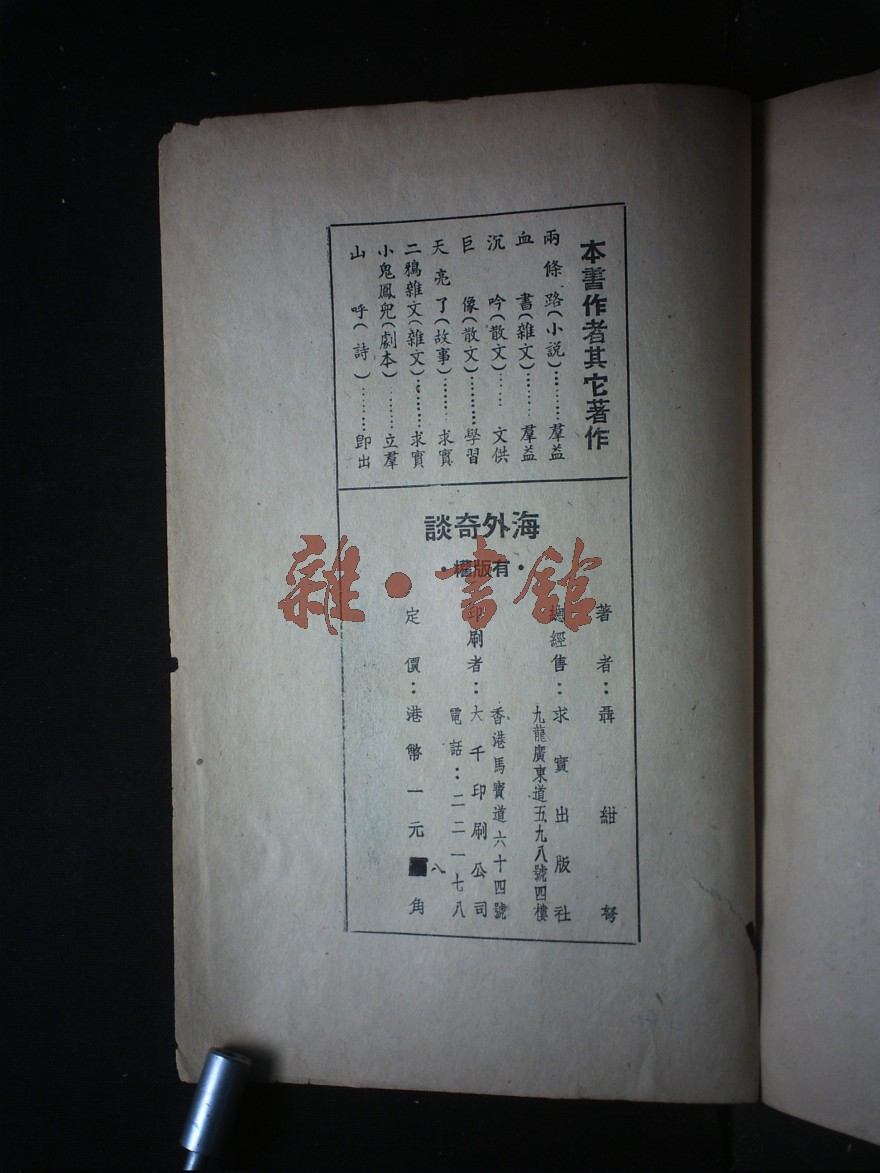 本書作者其它著作
兩條路(小説)………羣益
血書(雜文)………羣益
沉吟(散文)……文供
巨像(散文)………學習
天亮了(故事)………求實
二鴉雜文(雜文)………求實
小鬼鳳兒(劇本)………立羣
山呼(詩)………即出
海外奇談
·有版權·
著者:聶紺弩
總經售:求實出版社
九龍廣東道五九八號四樓
香港馬寶道六十四號
印刷者:大千印刷公司
電話:二二一七八
定價:港幣一元 角
八
雜·書館